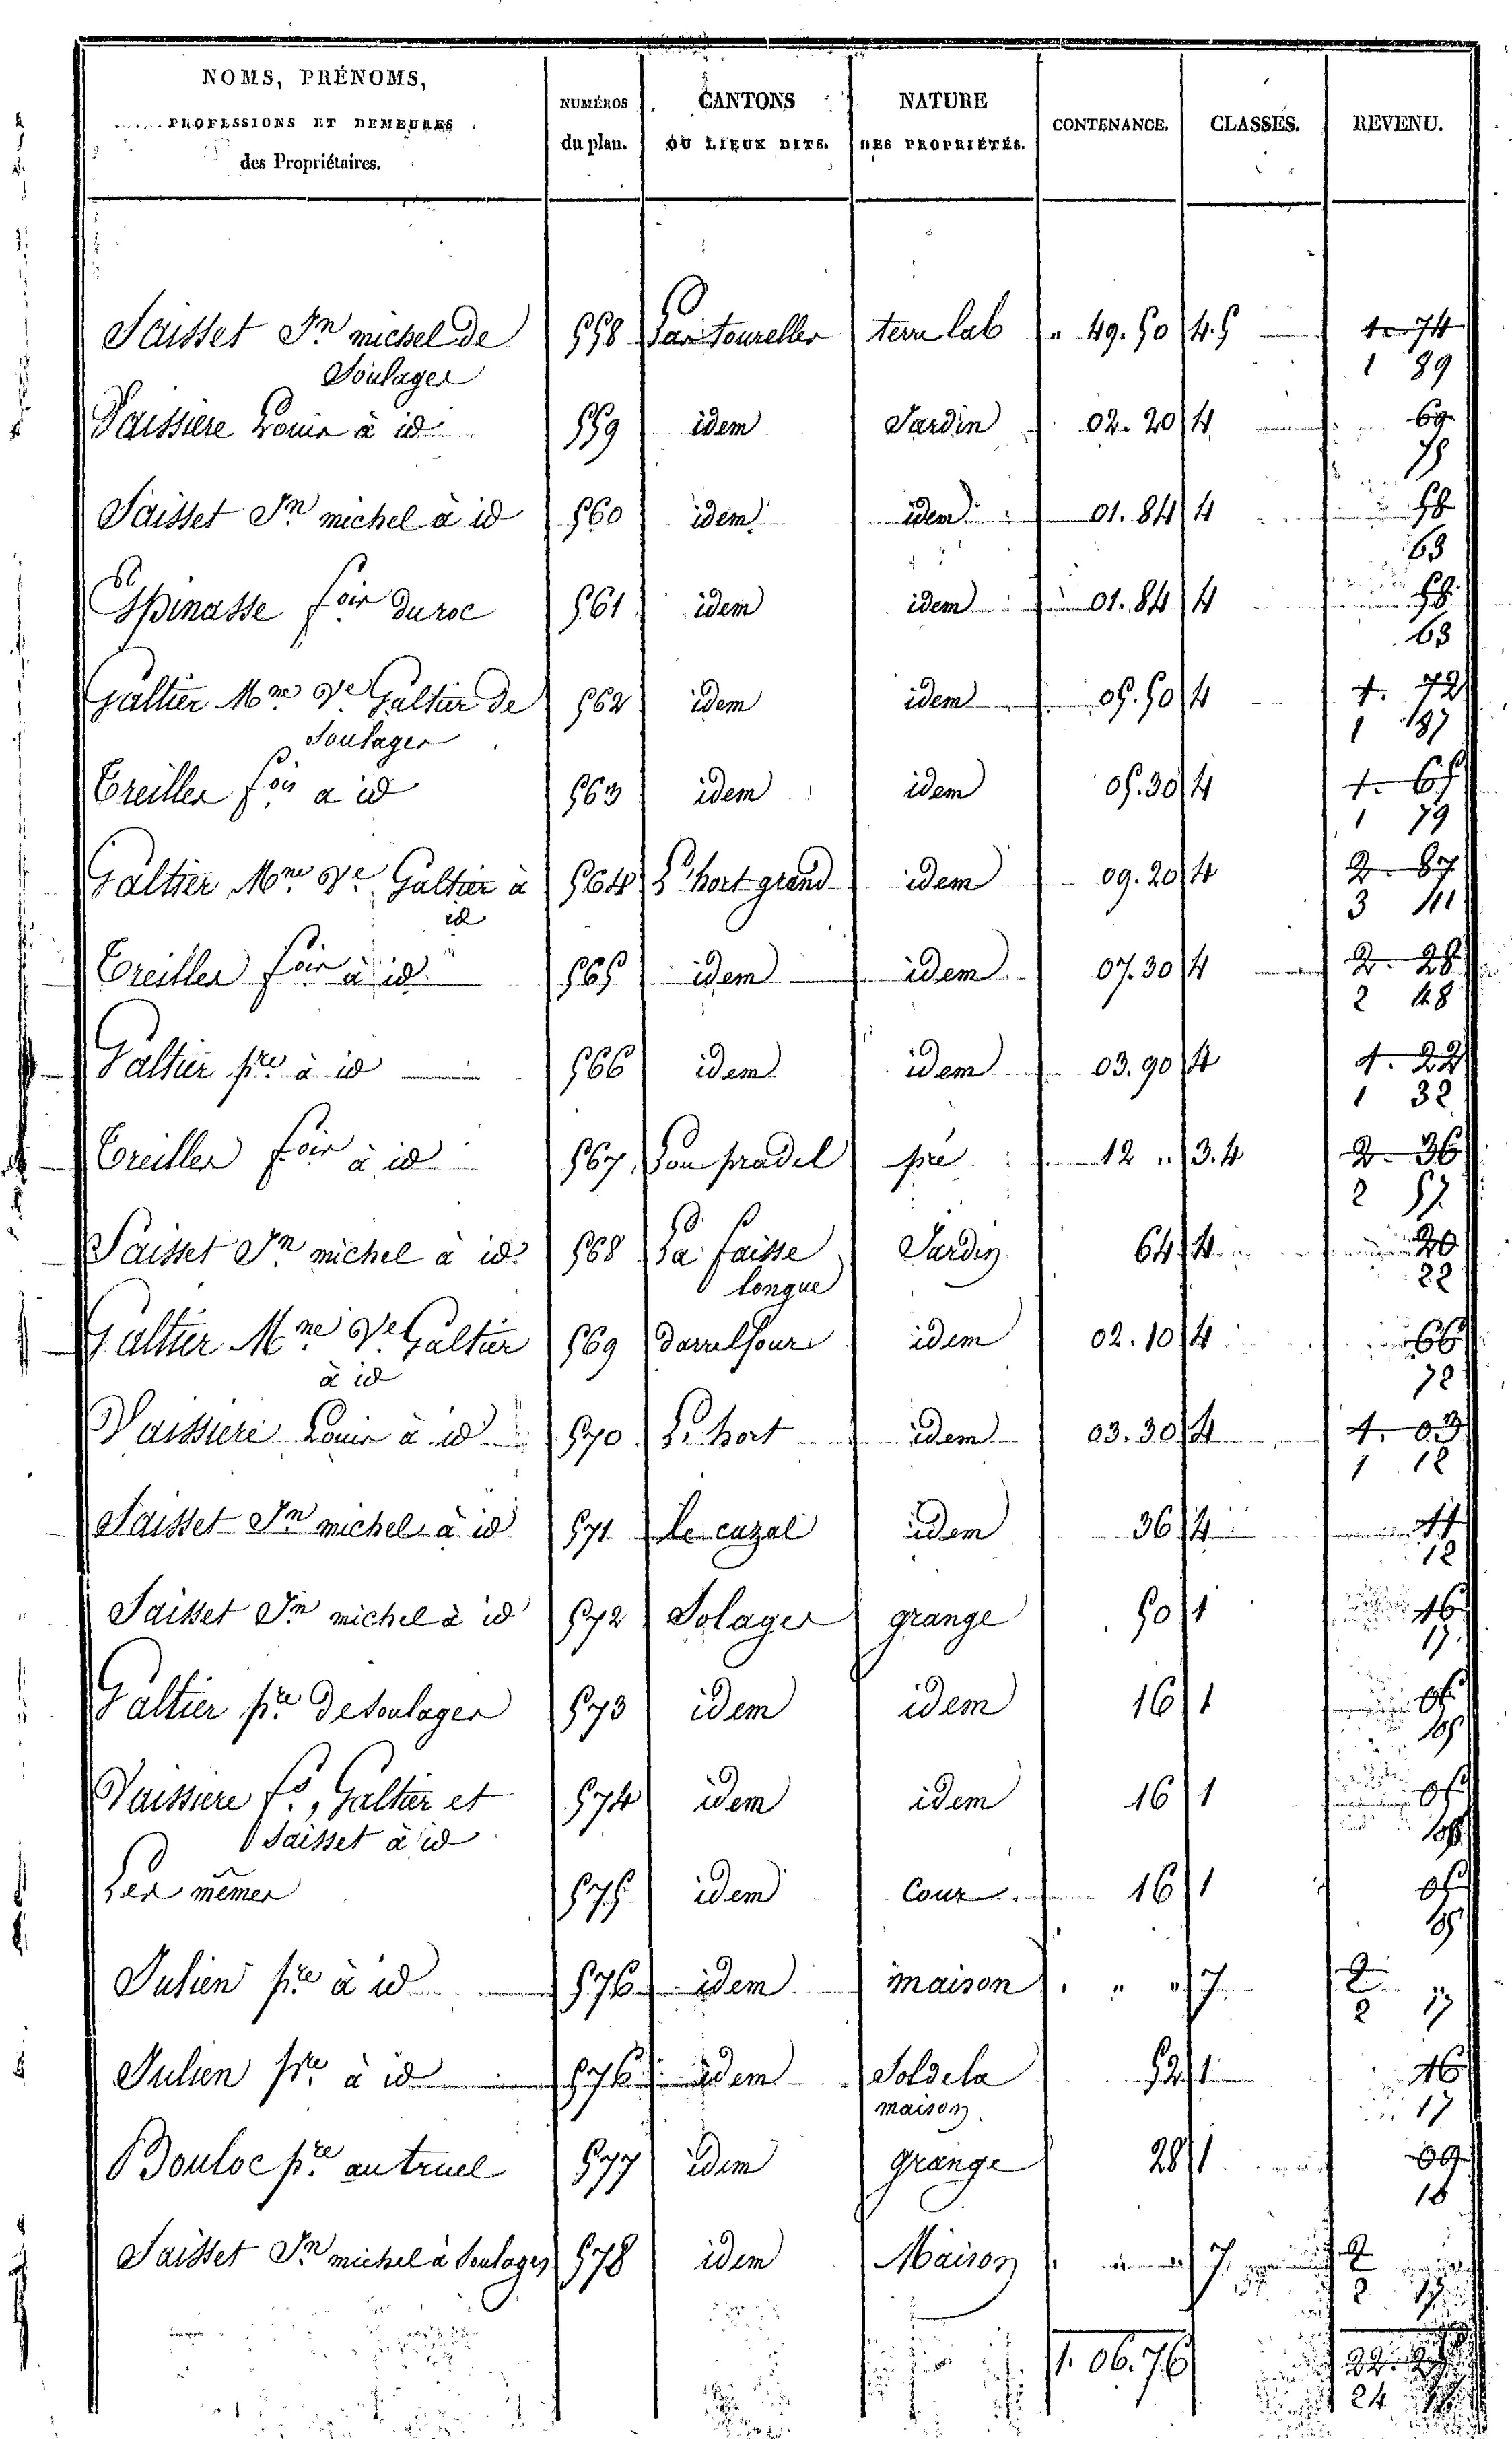 NOMS, PRÉNOMS,
PROFESSIONS ET DEMEURES
des Propriétaires.
NUMÉROS
du plan.
CANTONS
OU LIEUX DITS.
NATURE
DES PROPRIÉTÉS.
CONTENANCE.
CLASSES.
REVENU.
Saisset Jn michel de 558 Las tourelles terre lab " 49.50 4.5 1. 74
Soulages 1 89
Vaissiere Louis à id 559 idem Jardin 02.20 4 69
75
Saisset Jn michel à id 560 idem idem 01.84 4 58
63
Espinasse fois du roc 561 idem idem 01.84 4 58
63
Galtier Mne Ve Galtier de 562 idem idem 05.50 4 1. 72
Soulages 1 87
Creilles fois a id 563 idem idem 05.30 4 1. 65
1 79
Galtier Mne Ve Galtier à 564 L'hort grand idem 09.20 4 2. 87
id 3 11
Creilles fois à id 565 idem idem 07.30 4 2. 28
2 48
Galtier pre à id 566 idem idem 03.90 4 1. 22
1 32
Creilles fois à id 567 Lou pradel pré 12 " 3.4 2. 36
2 57
Saisset Jn michel à id 568 La faisse Jardin 64 4 20
longue 22
Galtier Mne Ve Galtier 569 darrelfour idem 02.10 4 66
à id 72
Vaissiere Louis à id 570 L'hort idem 03.30 4 1. 03
1 12
Saisset Jn michel à id 571 le cazal idem 36 4 11
12
Saisset Jn michel à id 572 Solages grange 50 1 16
17
Galtier pre de Soulages 573 idem idem 16 1 05
05
Vaissiere fs, Galtier et 574 idem idem 16 1 05
Saisset à id 05
Les mêmes 575 idem Cour 16 1 05
05
Julien pre à id 576 idem maison " " 7 2
2 17
Julien pre à id 576 idem Sol de la 52 1 16
maison 17
Bouloc pre au truel 577 idem grange 28 1 09
10
Saisset Jn michel à Soulages 578 idem Maison 7 2
2 17
1.06.76 22.
24